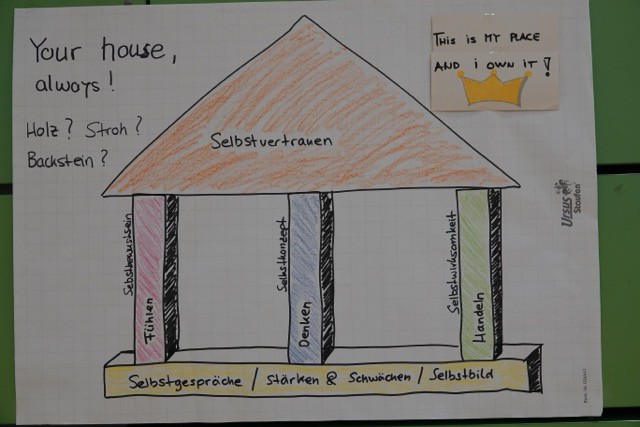 Your house,
always!
Holz? Stroh?
Backstein?
THIS IS MY PLACE
AND I OWN IT!
Selbstvertrauen
Selbstbewusstsein
Fühlen
Selbstkonzept
Denken
Selbstwirksamkeit
Handeln
Selbstgespräche / Stärken & Schwächen / Selbstbild
Ursus
Staufen